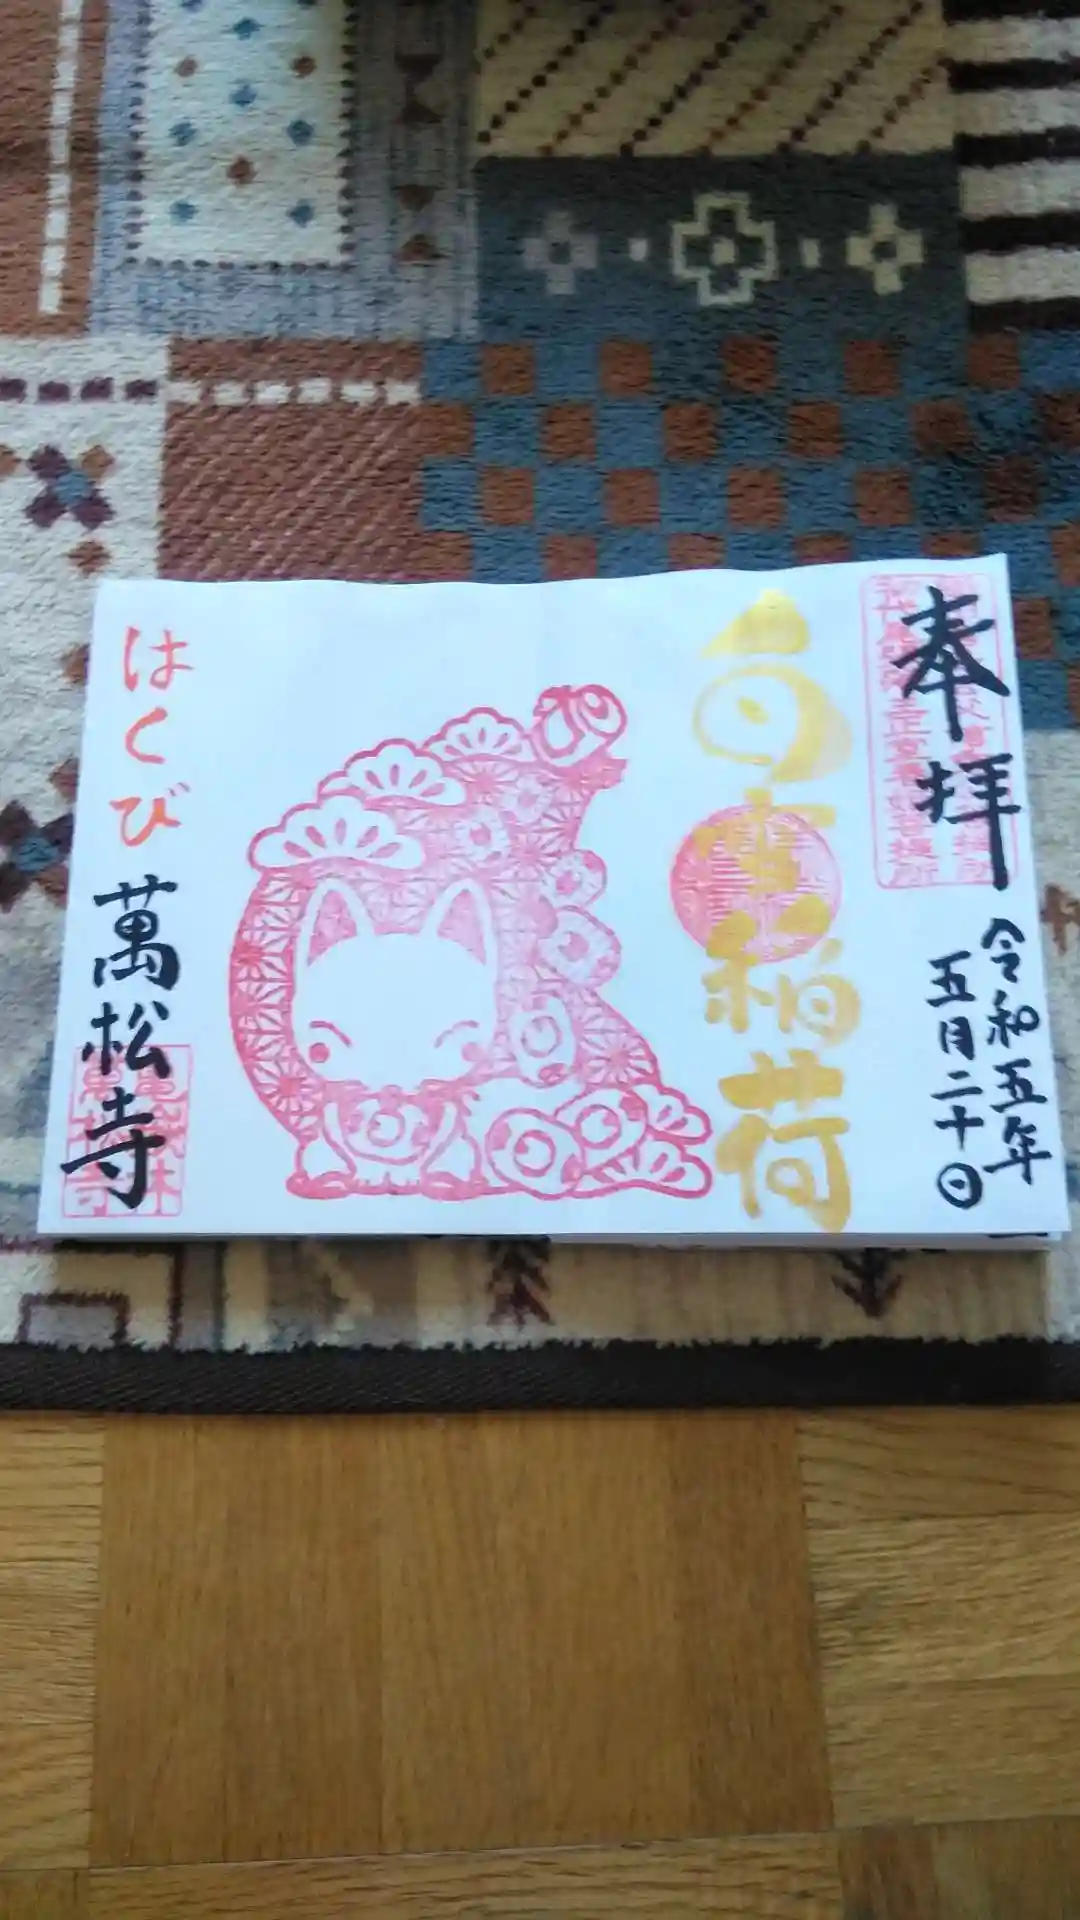 奉拝
令和五年
五月二十日
白雪稲荷
はくび
萬松寺